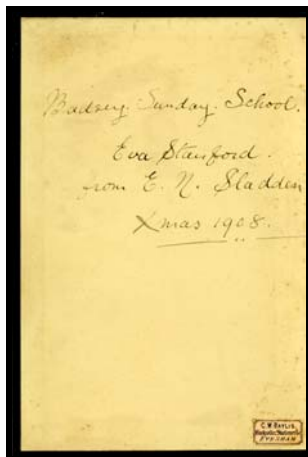 Badsey Sunday School.
Eva Stanford.
from E. N. Sladden
Xmas 1908.
C. W. BAYLIS,
EVESHAM